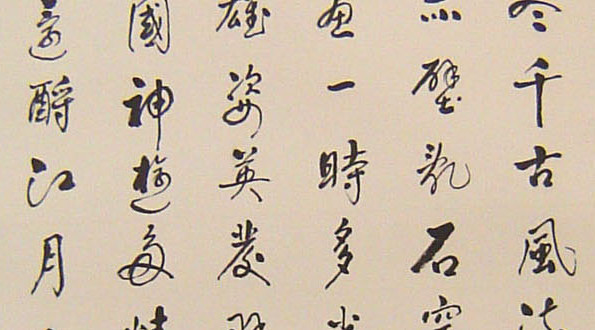 尽千古風流
赤壁亂石穿
畫一時多少
雄姿英發
國神遊多情
還酹江月